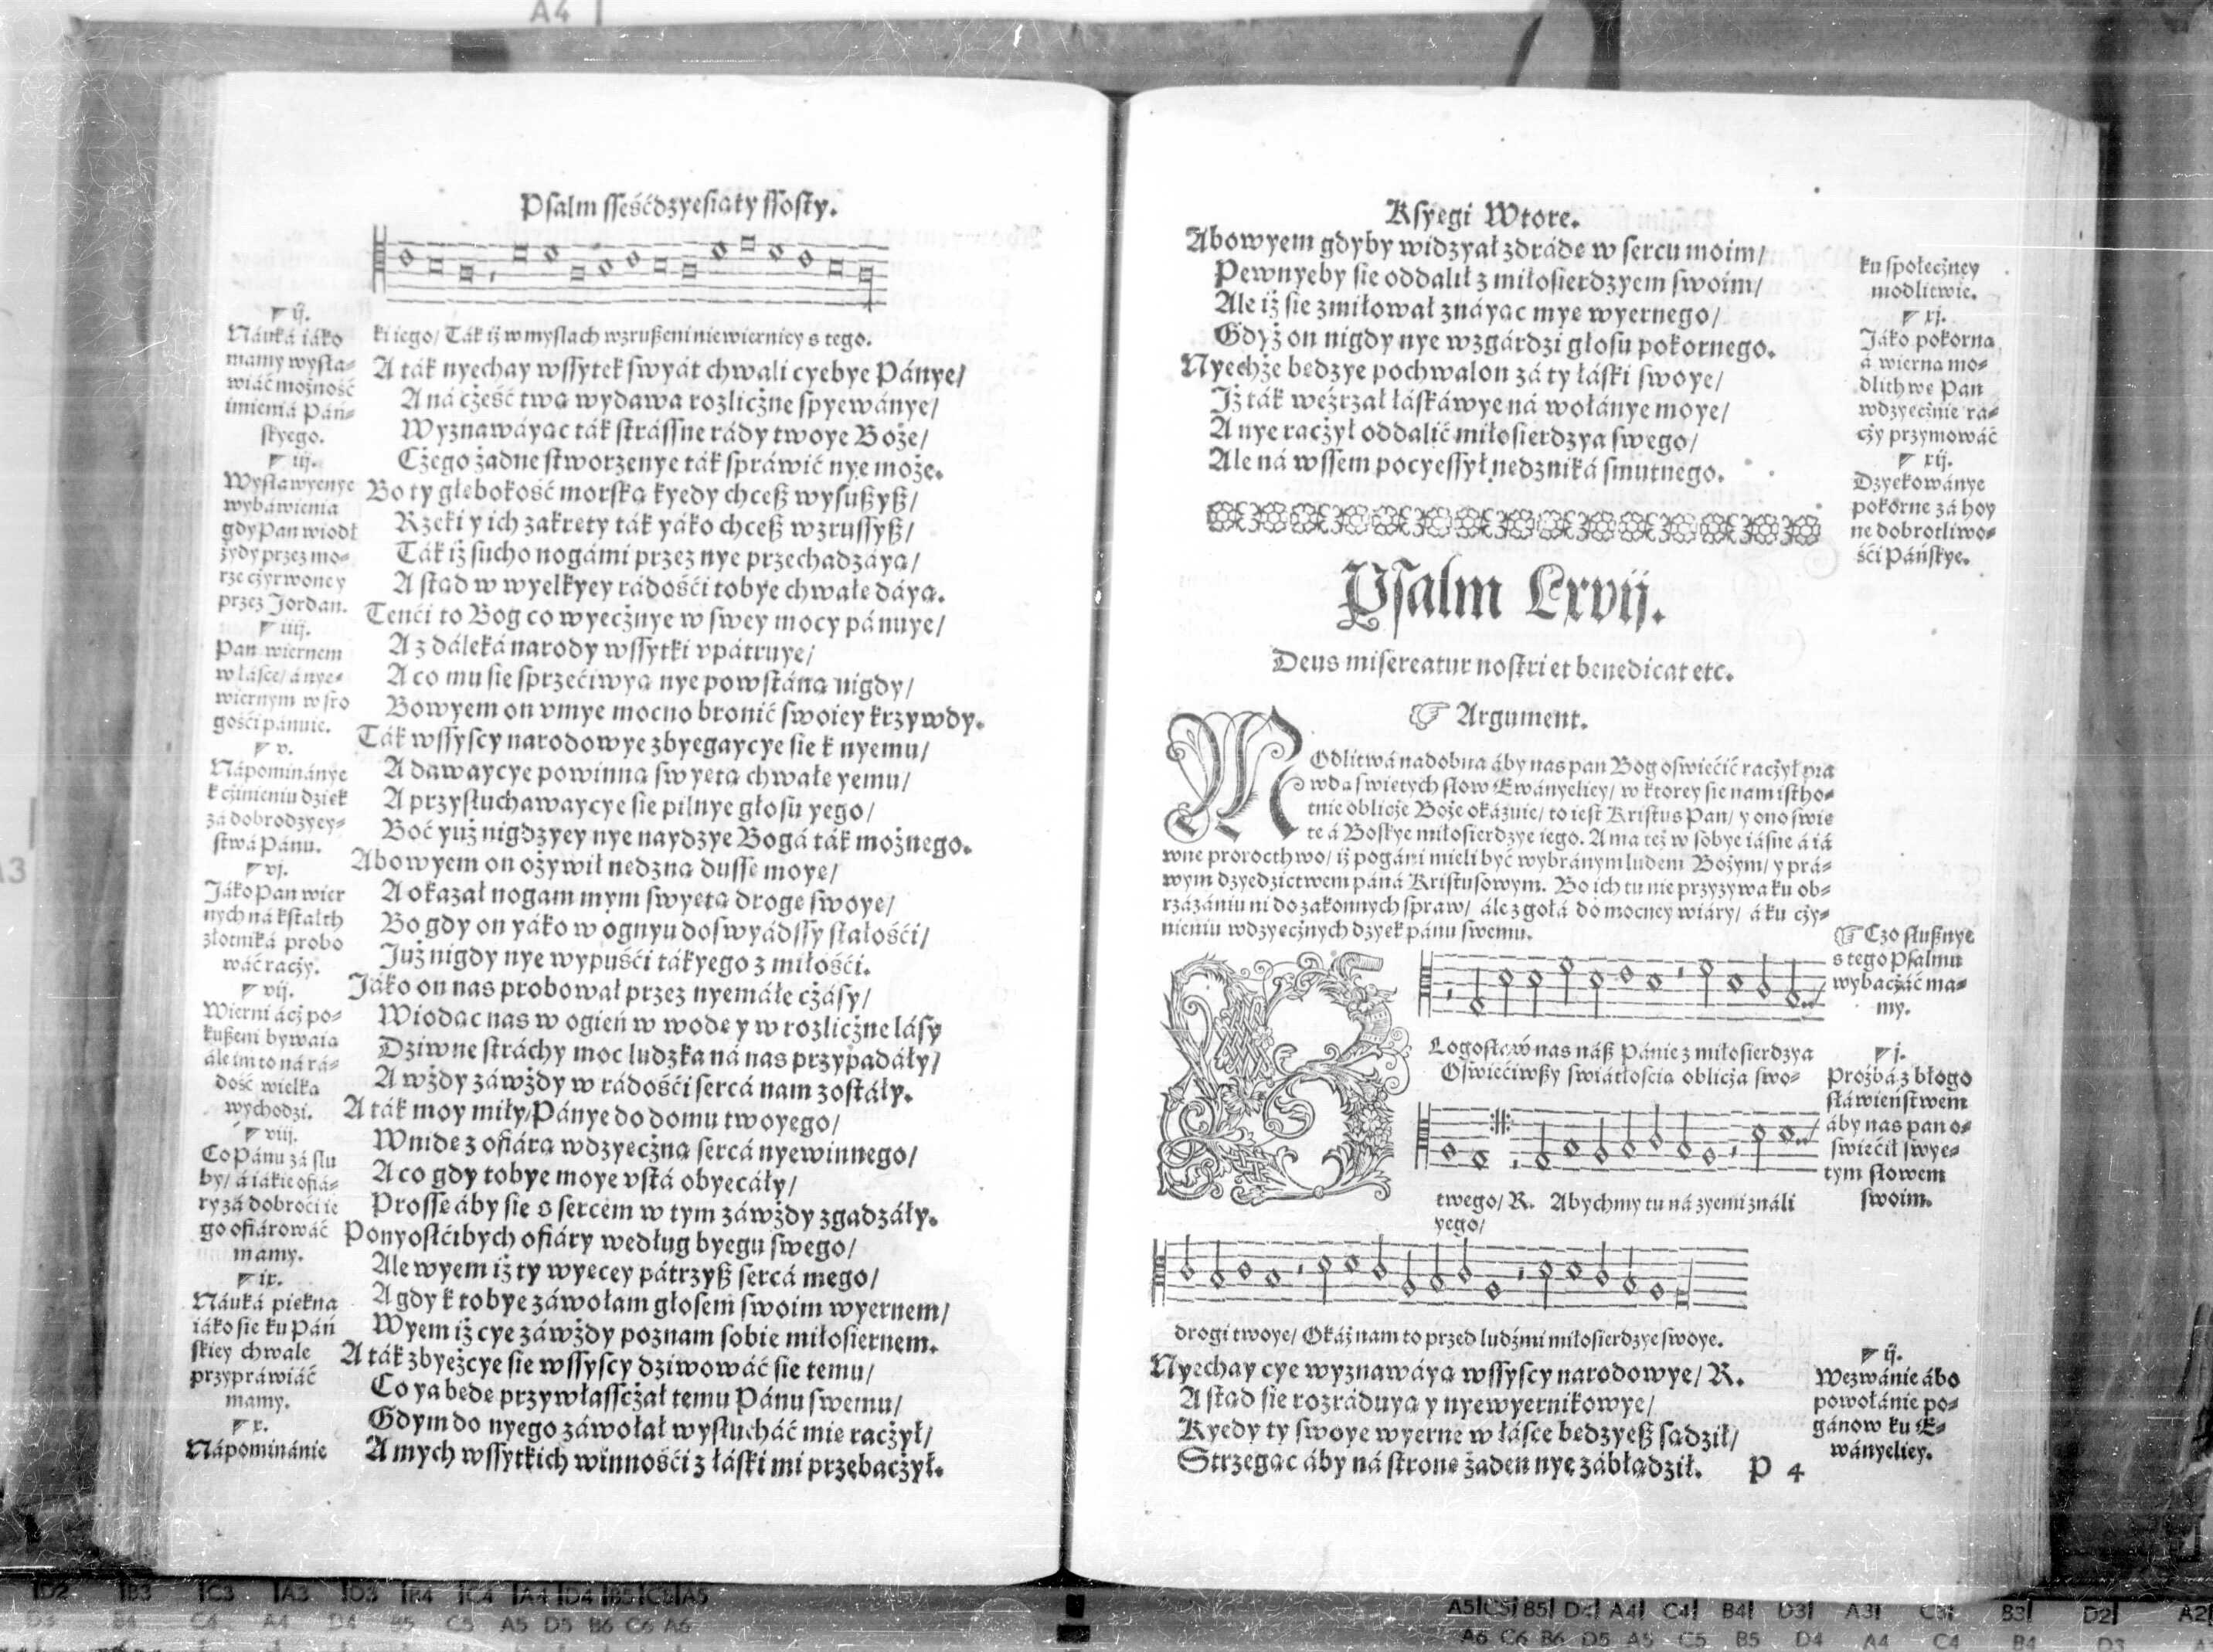 Psalm ſſeśćdzyesiąty ſſoſty.
ki iego/ Ták iż w myslach wzrußeni niewierniey s tego.
A ták nyechay wſſytek ſwyát chwali cyebye Pánye/
A ná cżeść twą wydawa rozlicżne ſpyewánye/
Wyznawáyąc ták ſtráſſne rády twoye Boże/
Cżego żadne ſtworzenye ták ſpráwić nye może.
Bo ty głębokość morſką kyedy chceß wysußyß/
Rzeki y ich zakręty ták yáko chceß wzruſſyß/
Ták iż ſucho nogámi przez nye przechadzáyą/
A ſtąd w wyelkyey rádośći tobye chwałę dáyą.
Tenći to Bog co wyecżnye w ſwey mocy pánuye/
A z dáleká narody wſſytki vpátruye/
A co mu ſie ſprzećiwyą nye powſtáną nigdy/
Bowyem on vmye mocno bronić ſwoiey krzywdy.
Ták wſſyſcy narodowye zbyegaycye ſie k nyemu/
A dawaycye powinną ſwyętą chwałę yemu/
A przyſłuchawaycye ſie pilnye głoſu yego/
Boć yuż nigdzyey nye naydzye Bogá ták możnego.
Abowyem on ożywił nędzną duſſę moyę/
A okazał nogam mym ſwyętą drogę ſwoyę/
Bo gdy on yáko w ognyu doſwyádſſy ſtałośći/
Już nigdy nye wypuśći tákyego z miłośći.
Jáko on nas probował przez nyemáłe cżáſy/
Wiodąc nas w ogień w wodę y w rozlicżne láſy
Dziwne ſtráchy moc ludzka ná nas przypadáły/
A wżdy záwżdy w rádośći ſercá nam zoſtáły.
A ták moy miły Pánye do domu twoyego/
Wnidę z ofiárą wdzyecżną ſercá nyewinnego/
A co gdy tobye moye vſtá obyecáły/
Proſſę áby ſie s ſercem w tym záwżdy zgadzáły.
Ponyosłćibych ofiáry według byegu ſwego/
Ale wyem iż ty wyęcey pátrzyß ſercá mego/
A gdy k tobye záwołam głoſem ſwoim wyernem/
Wyem iż cye záwżdy poznam ſobie miłoſiernem.
A ták zbyeżcye ſie wſſyſcy dziwowáć ſie temu/
Co ya będę przywłaſſcżał temu Pánu ſwemu/
Gdym do nyego záwołał wyſłucháć mie racżył/
A mych wſſytkich winnośći z łáſki mi przebacżył.
ij.
Náuká iáko
mamy wysła-
wiáć możność
imieniá Páń-
ſkyego.
iij.
Wyſławyenye
wybáwienia
gdy Pan wiodł
żydy przez mo-
rze cżyrwoney
przez Jordan.
iiij.
Pan wiernem
w łáſce/ á nye-
wiernym w ſro
gośći pánuie.
v.
Nápominánye
k cżinieniu dzięk
zá dobrodzyey-
ſtwá Pánu.
vj.
Jáko Pan wier
nych ná kſtałth
złotniká probo
wáć racży.
vij.
Wierni ácż po-
kußeni bywaią
ále im to ná rá-
dość wielką
wychodzi.
viij.
Co Pánu zá ſlu
by/ á iákie ofiá-
ry zá dobroći ie
go ofiárowáć
mamy.
ix.
Náuká piękna
iáko ſie ku Páń
ſkiey chwale
przypráwiáć
mamy.
x.
Nápominánie
Kſyęgi Wtore.
Abowyem gdyby widzyał zdrádę w ſercu moim/
Pewnyeby ſie oddalił z miłoſierdzyem ſwoim/
Ale iż ſie zmiłował znáyąc mye wyernego/
Gdyż on nigdy nye wzgárdzi głoſu pokornego.
Nyechże będzye pochwalon zá ty łáſki ſwoye/
Iż ták weźrzał łáſkáwye ná wołánye moye/
A nye racżył oddalić miłoſierdzya ſwego/
Ale ná wſſem pocyeſſył nędzniká ſmutnego.
ku ſpołecżney
modlitwie.
xj.
Jáko pokorna
á wierna mo-
dlithwę Pan
wdzyęcżnie rá-
cży przymowáć
xij.
Dzyękowánye
pokorne zá hoy
ne dobrotliwo-
śći Páńſkye.
Psalm Lxvij.
Deus misereatur noſtri et benedicat etc.
Argument.
MOdlitwá nadobna áby nas pan Bog oświećić racżył prá
wdą ſwiętych ſłow Ewányeliey/ w ktorey ſie nam iſtho-
tnie oblicże Boże okázuie/ to ieſt Kriſtus Pan/ y ono ſwię
te á Boſkye miłoſierdzye iego. A ma też w ſobye iáſne á iá
wne proroctwo/ iż pogáni mieli być wybránym ludem Bożym/ y prá-
wym dzyedzictwem páná Kriſtuſowym. Bo ich tu nie przyzywa ku ob-
rzázániu ni do zakonnych ſpraw/ ále z gołá do mocney wiáry/ á ku cży-
nieniu wdzyęcżnych dzyęk pánu ſwemu.
Czo słußnye
s tego Psalmu
wybacżáć ma-
my.
BLogosław nas náß Pánie z miłoſierdzya
Oświećiwßy ſwiátłością oblicża ſwo-
j.
Prożbá z błogo
ſłáwieńſtwem
áby nas pan o-
ſwiećił ſwyę-
tym ſłowem
ſwoim.
twego/ R. Abychmy tu ná zyemi ználi
yego/
drogi twoye/ Okáż nam to przed ludźmi miłoſierdzye ſwoye.
Nyechay cye wyznawáyą wſſyſcy narodowye/ R.
A ſtąd ſie rozráduyą y nyewyernikowye/
Kyedy ty ſwoye wyerne w łáſce będzyeß ſądził/
Strzegąc áby ná ſtronę żaden nye zábłądził.
P 4
ij.
Wezwánie ábo
powołánie po-
gánow ku E-
wányeliey.